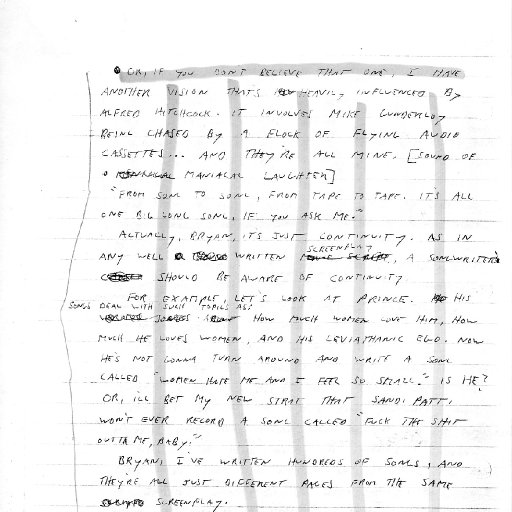 OR, IF YOU DON'T BELIEVE THAT ONE, I HAVE
ANOTHER VISION THAT'S HEAVILY INFLUENCED BY
ALFRED HITCHCOCK. IT INVOLVES MIKE GUNDERLOY
BEING CHASED BY A FLOCK OF FLYING AUDIO
CASSETTES... AND THEY'RE ALL MINE. [SOUND OF
MANIACAL LAUGHTER]
"FROM SONG TO SONG, FROM TAPE TO TAPE. IT'S ALL
ONE BIG LONG SONG, IF YOU ASK ME."
ACTUALLY, BRYAN, IT'S JUST CONTINUITY. AS IN
SCREENPLAY
ANY WELL WRITTEN , A SONGWRITER
SHOULD BE AWARE OF CONTINUITY
FOR EXAMPLE, LET'S LOOK AT PRINCE. HIS
SONGS DEAL WITH SUCH TOPICS AS:
HOW MUCH WOMEN LOVE HIM, HOW
MUCH HE LOVES WOMEN, AND HIS LEVIATHANIC EGO. NOW
HE'S NOT GONNA TURN AROUND AND WRITE A SONG
CALLED "WOMEN HATE ME AND I FEEL SO SMALL." IS HE?
OR, I'LL BET MY NEW STRAT THAT SANDI PATTI
WON'T EVER RECORD A SONG CALLED "FUCK THE SHIT
OUTTA ME, BABY."
BRYAN, I'VE WRITTEN HUNDREDS OF SONGS, AND
THEY'RE ALL JUST DIFFERENT PAGES FROM THE SAME
SCREENPLAY.